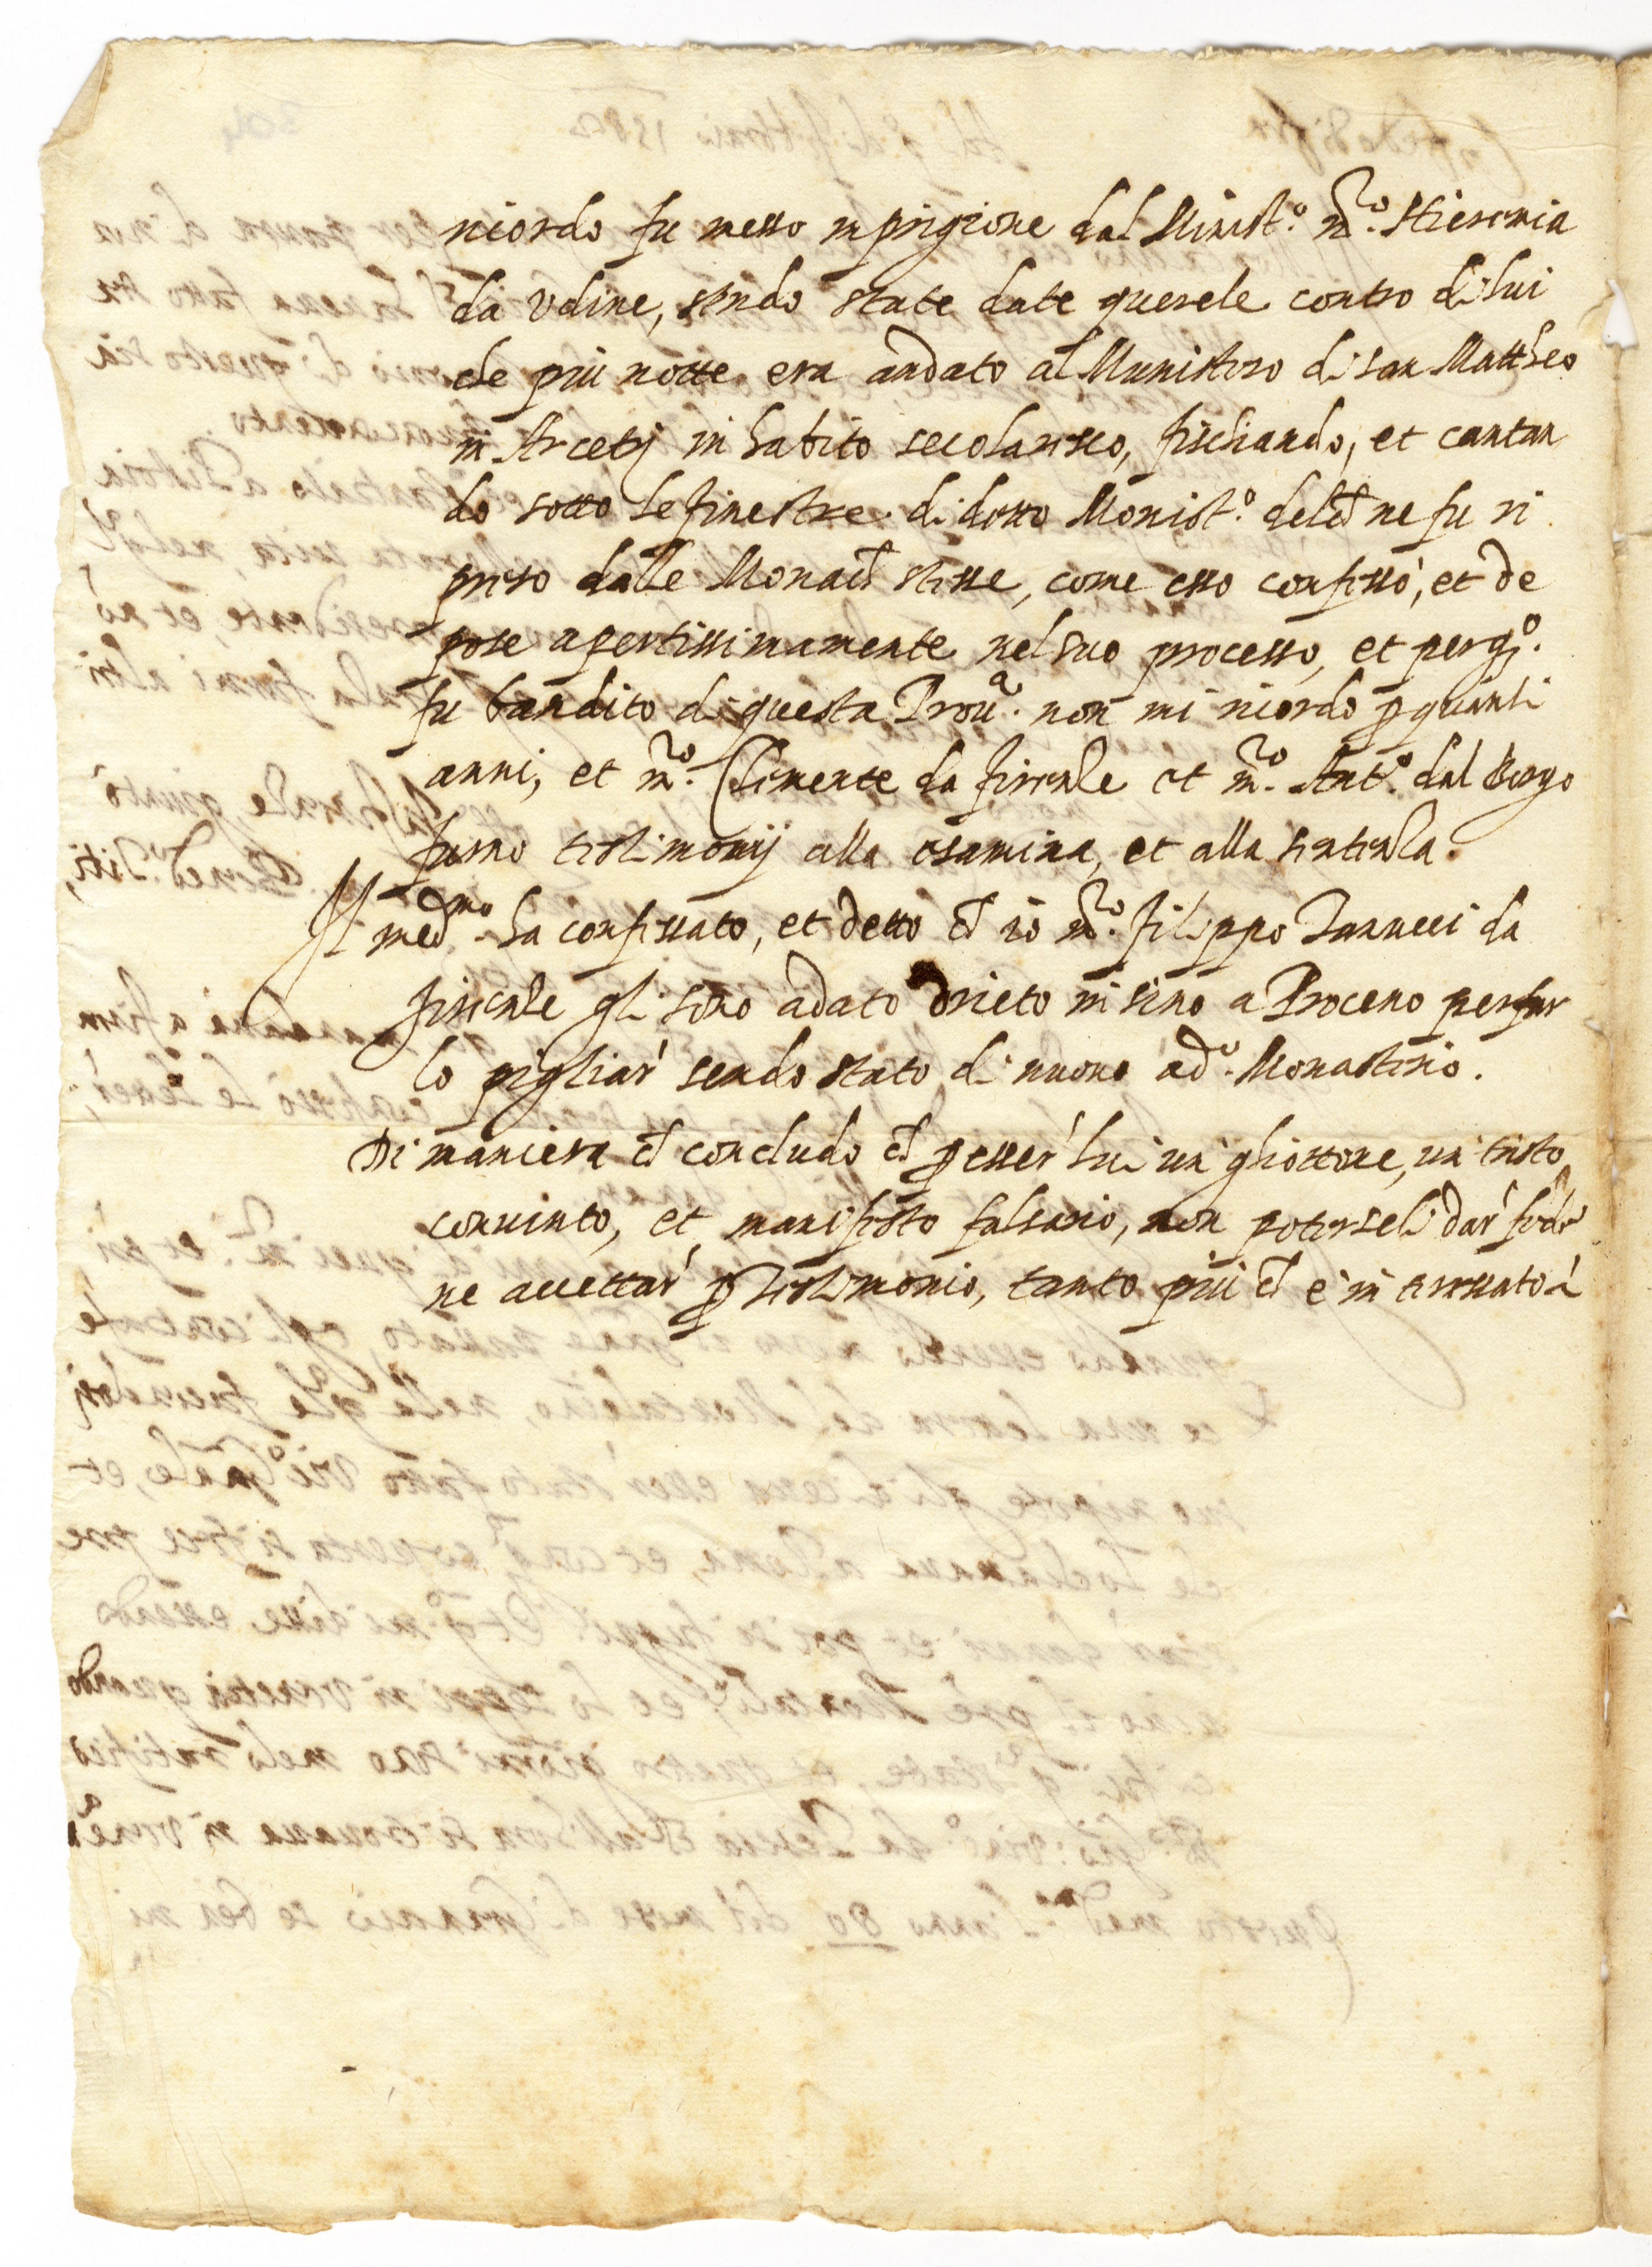 ricordo fu messo in prigione dal Minist.o m.ro Hieremia
da Udine, sendo state date querele contro di lui
che più notte era andato al Munistero di san Mattheo
in Arcetrj in habito secolaresco, fischiando, et cantan
do sotto le finestre di detto Monist.o del ch̃ ne fu ri
preso dalle Monach̃ stesse, come esso confessò, et de
pose apertissimamente nel suo processo, et perq.o
fu bandito di questa Prou.a non mi ricordo p̱ quanti
anni, et m.ro Clemente da firenze et m.ro Ant.o dal Borgo
furno testimonij alla esamina, et alla sentenza.
Il med.mo ha confessato, et detto ch̃ io m.ro filippo Tanucci da
firenze gli sono adato drieto insino a Proceno per far
lo pigliar' sendo stato di nuovo a d.o Monasterio.
Di maniera ch̃ concludo ch̃ p̱ esser' lui un' ghiottone, un tristo
convinto, et manifesto falsario, non potersele dar' fede
ne accettar' p̱ testimonio, tanto più ch̃ è interessato à